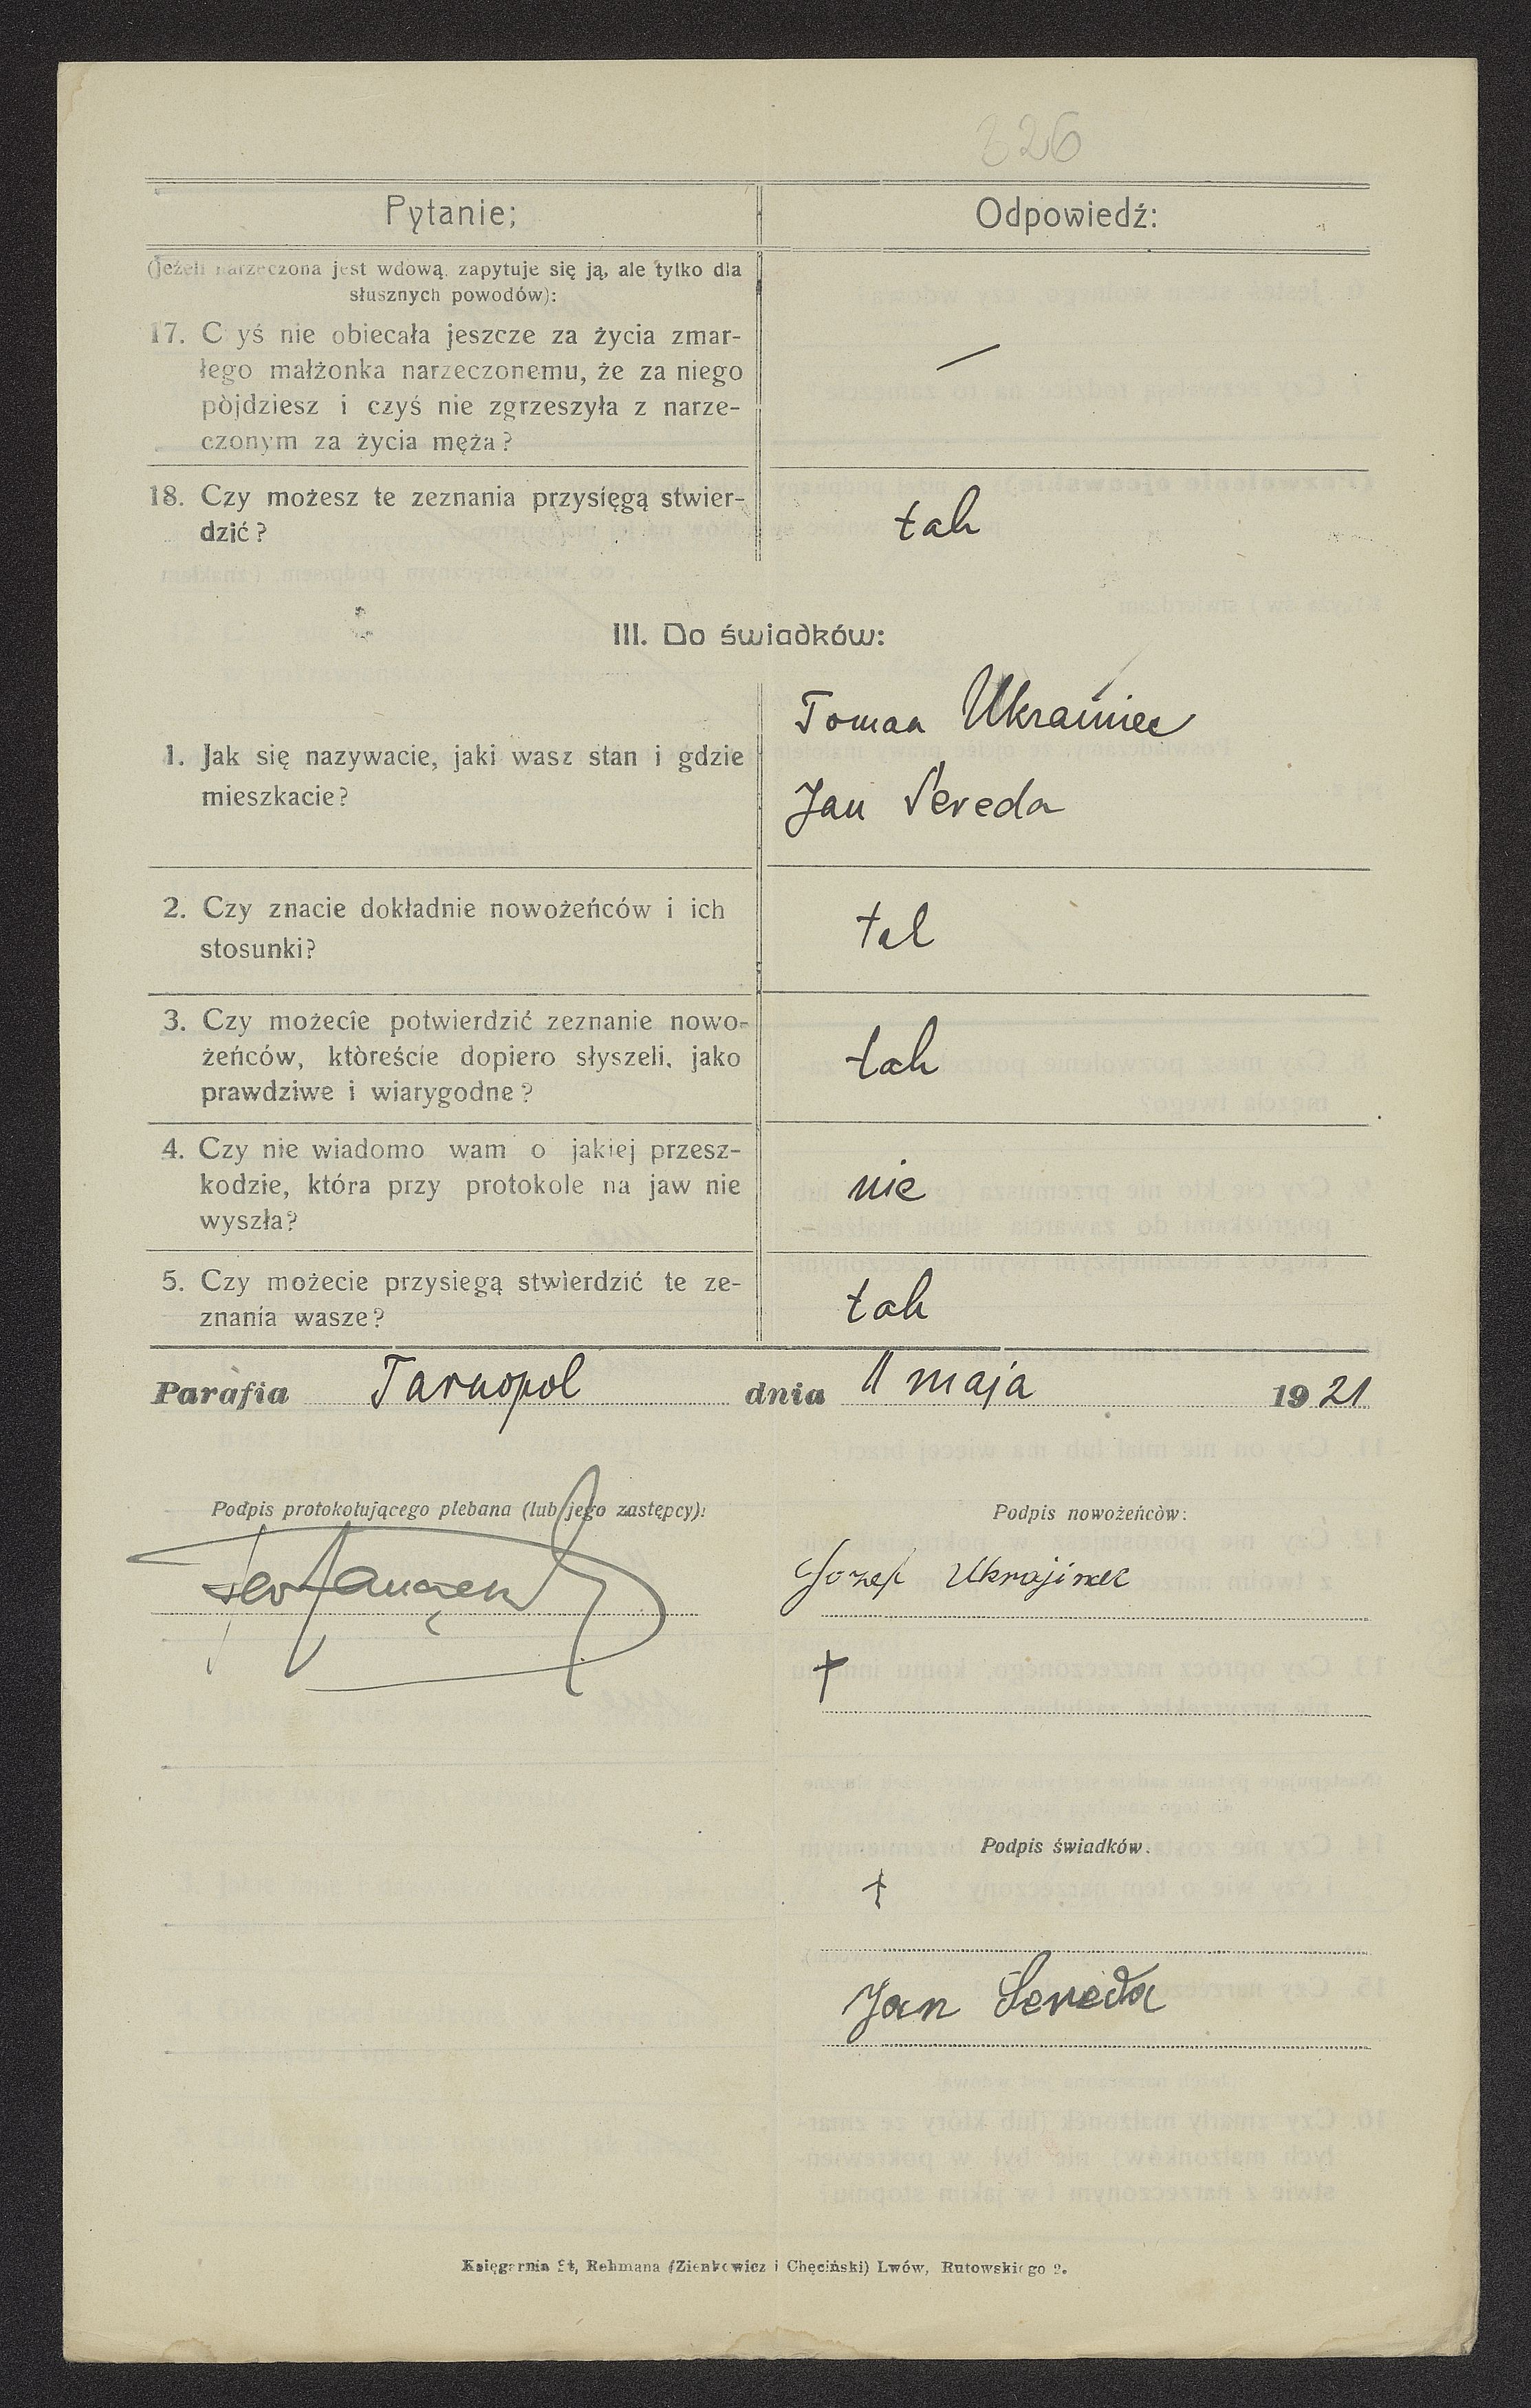 226
Pytanie; Odpowiedź:
(Jeżeli narzeczona jest wdową, zapytuje się ją, ale tylko dla
słusznych powodów):
17. C yś nie obiecała jeszcze za życia zmar-
łego małżonka narzeczonemu, że za niego
pòjdziesz i czyś nie zgrzeszyła z narze-
czonym za życia męża?
—
18. Czy możesz te zeznania przysięgą stwier-
dzić?
tak
III. Do świadków:
1. Jak się nazywacie, jaki wasz stan i gdzie
mieszkacie?
Tomas Ukrainiec
Jan Sereda
2. Czy znacie dokładnie nowożeńców i ich
stosunki?
tak
3. Czy możecie potwierdzić zeznanie nowo-
żeńców, któreście dopiero słyszeli, jako
prawdziwe i wiarygodne?
tak
4. Czy nie wiadomo wam o jakiej przesz-
kodzie, która przy protokole na jaw nie
wyszła?
nie
5. Czy możecie przysiegą stwierdzić te ze-
znania wasze?
tak
Parafia Tarnopol dnia 11 maja 1921
Podpis protokołującego plebana (lub jego zastępcy):
Podpis nowożeńcòw:
Jozef Ukrajinec
†
Podpis świadków.
†
Jan Sereda
Księgarnia St, Rehmana (Zienkowicz i Chęciński) Lwów, Rutowskiego 2.